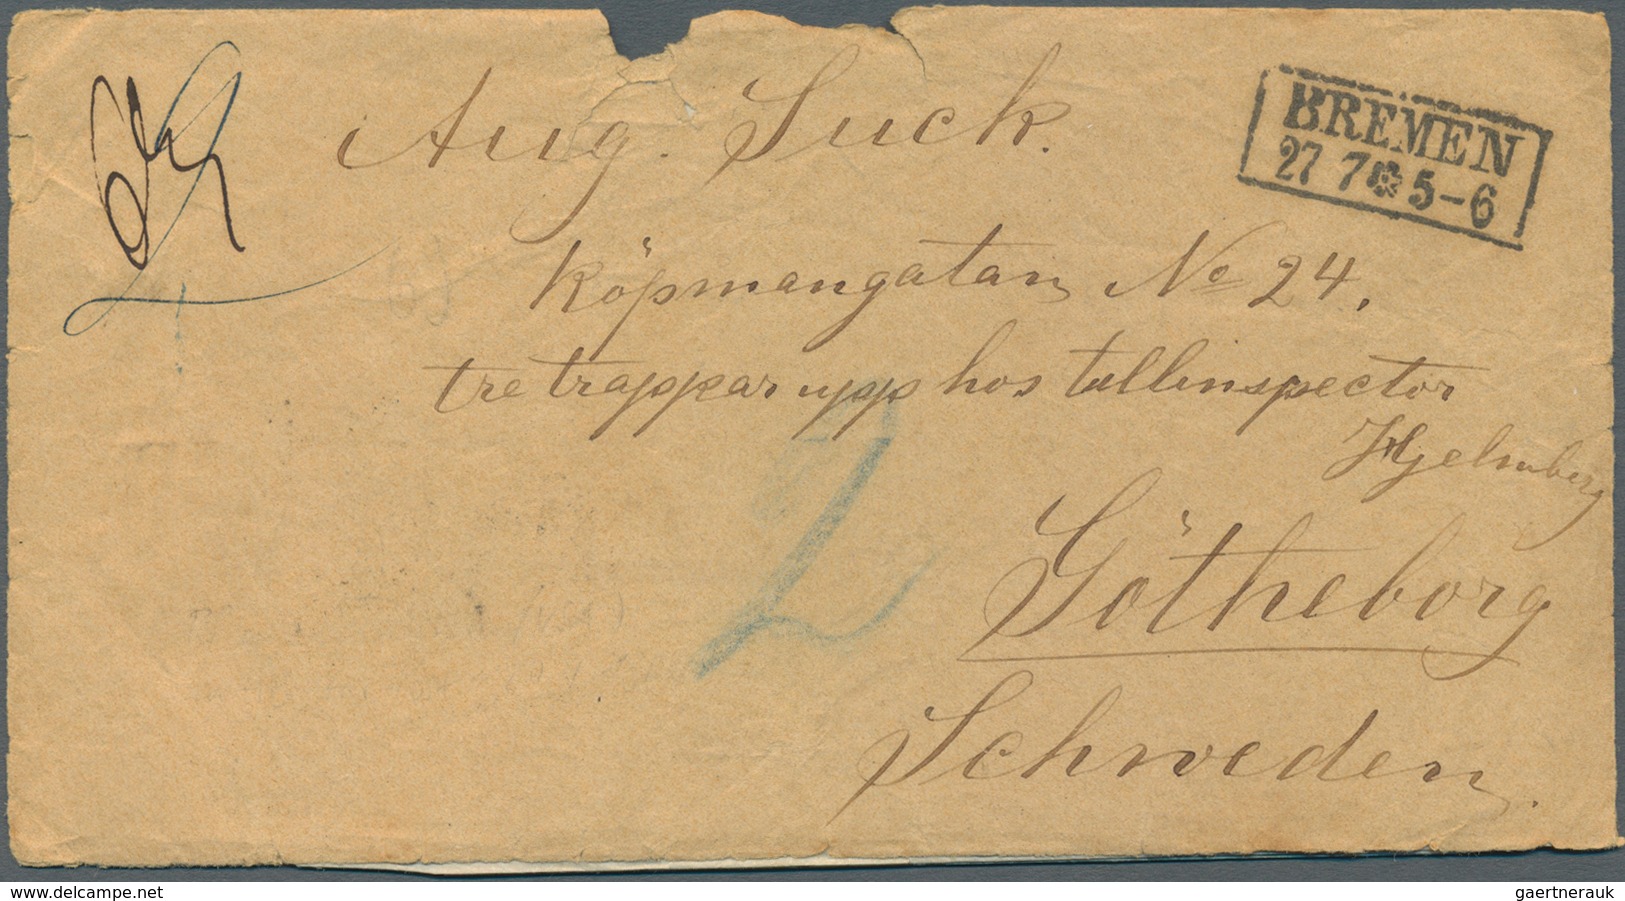 Aug. Suck.
BREMEN
27 7 5-6
Köpmangatan No 24.
tre trappar upp hos tullinspector
Hjelmberg
2
Götheborg
Schweden.
www.delcampe.net
gaertnerauk